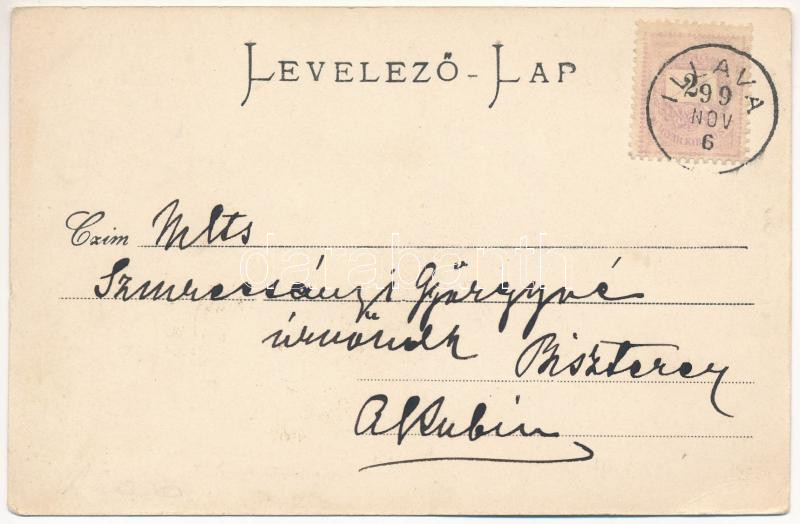 LEVELEZŐ-LAP
ILLAVA
299
NOV
6
Czim Mlts
Szmrecsányi Györgyné
úrnőnek Biszterec
AKubin
darabanth